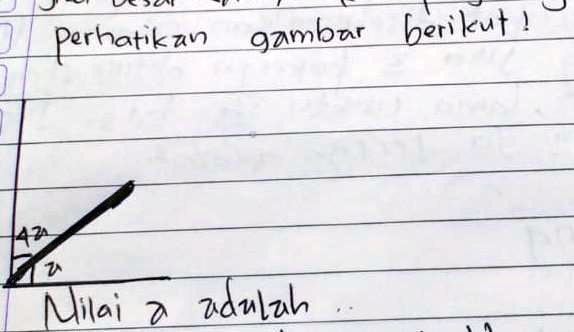 perhatikan gambar berikut!
4a
a
Nilai a adalah ..